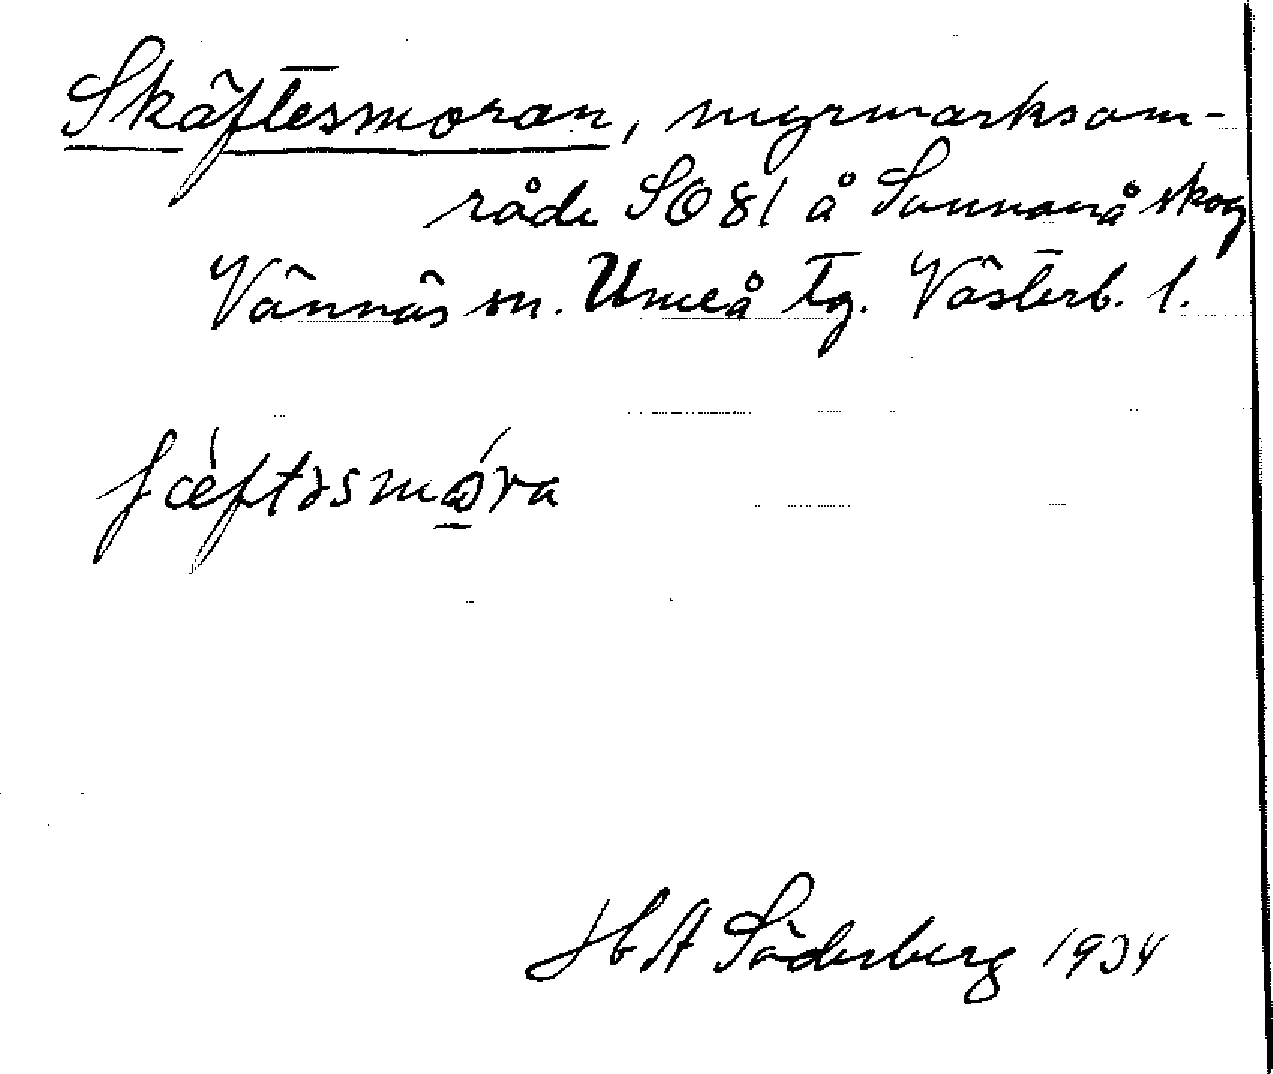 Skäftesmoran, myrmarksom-
råde SO 81 å Sunnanå skog
Vännäs sn. Umeå tg. Västerb. l.
ʃæ̀ftəsmɷ́ra
H A Söderberg 1934